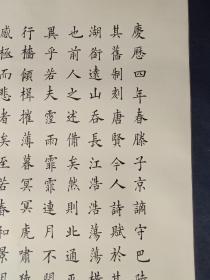 慶曆四年春滕子京謫守巴陵
其舊制刻唐賢今人詩賦於其
湖銜遠山吞長江浩浩蕩蕩橫
也前人之述備矣然則北通巫
異乎若夫霪雨霏霏連月不開
行檣傾楫摧薄暮冥冥虎嘯
感極而悲者矣至若春和景